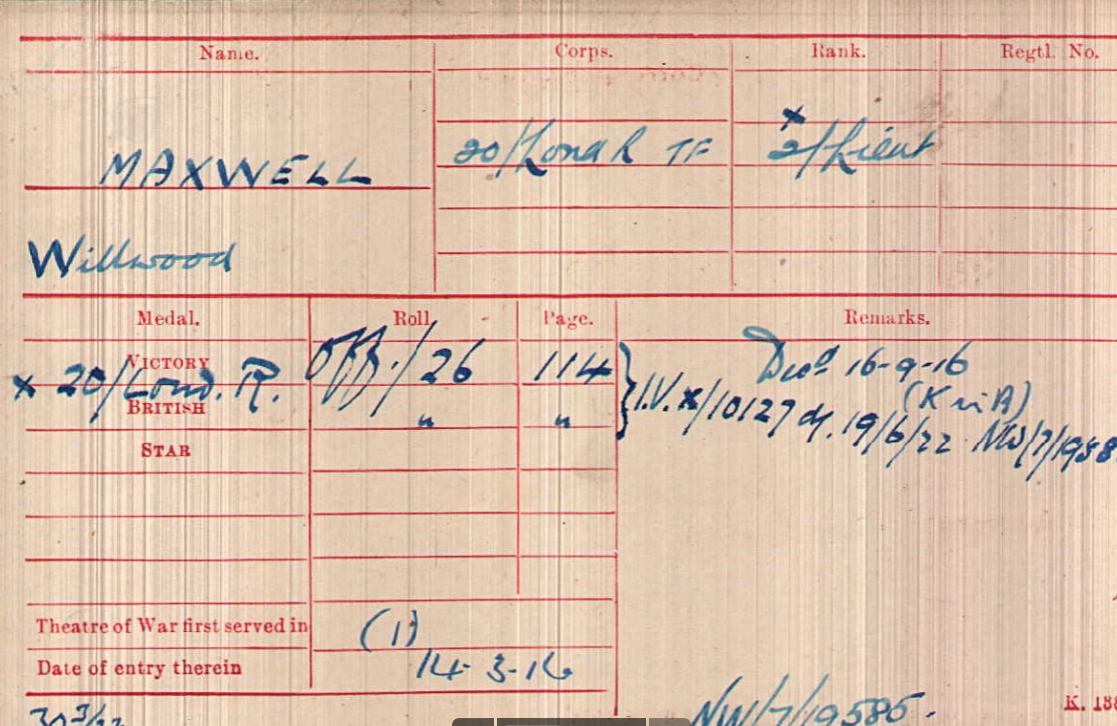 Name. Corps. Rank. Regtl. No.
MAXWELL 20/Lond R TF x 2/Lieut
Willwood
Medal. Roll Page. Remarks.
VICTORY Off/26 114 Decd 16-9-16
x 20/Lond. R. (K in A)
BRITISH " " I.V. x/10127 d/. 19/6/22 NW/7/19585
STAR
Theatre of War first served in (1)
Date of entry therein 14-3-16
NW/7/19585.
K. 188